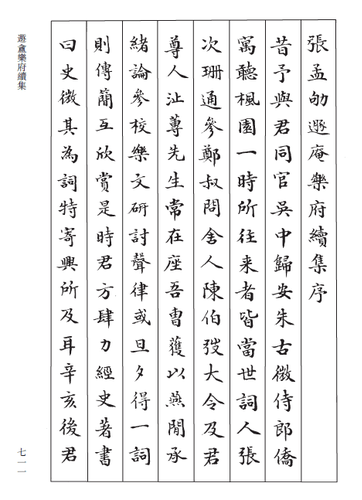 張孟劬遯庵樂府續集序
昔予與君同官吳中歸安朱古微侍郎僑
寓聽楓園一時所往来者皆當世詞人張
次珊通參鄭叔問舍人陳伯弢大令及君
尊人沚蓴先生常在座吾曹獲以燕閒承
緒論參校樂文研討聲律或旦夕得一詞
則傳箋互欣賞是時君方肆力經史著書
曰史微其為詞特寄興所及耳辛亥後君
遯盦樂府續集
七一一